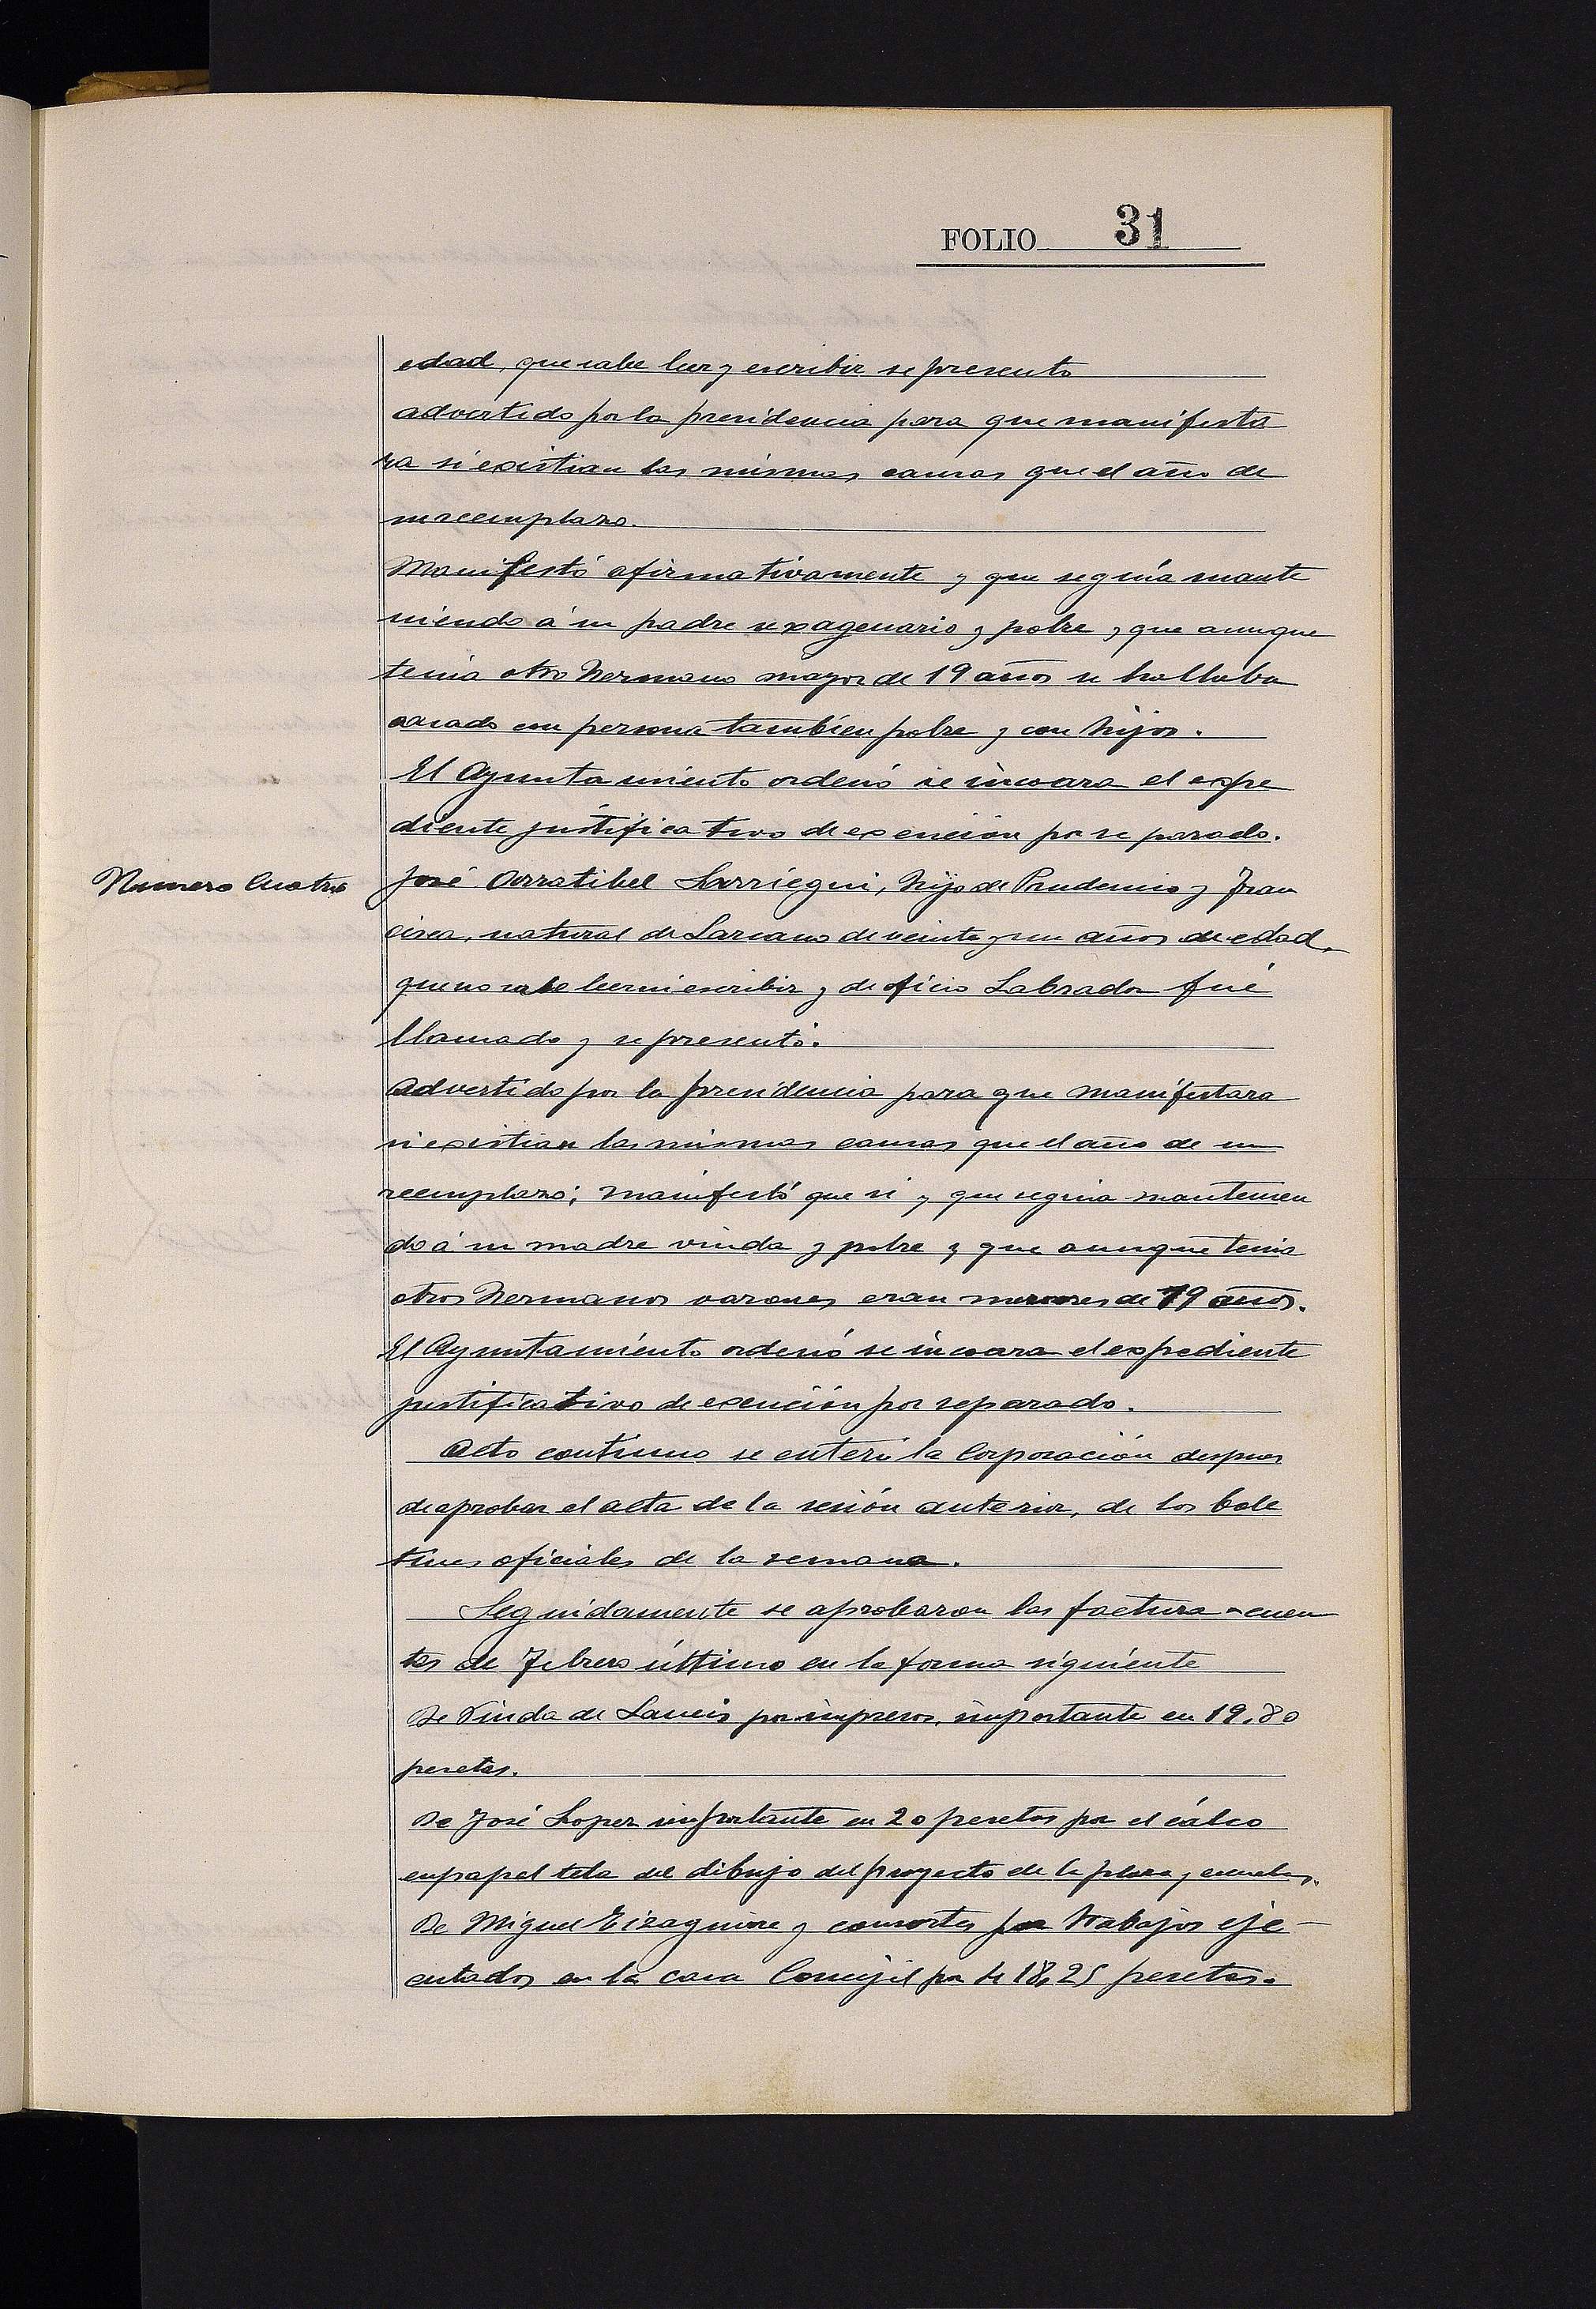 FOLIO 31
edad, que sabe leer y escribir se presentó
advertido por la presidencia para que manifesta
ra si existian las mismas causas que el año de
su reemplazo.
Manifestó afirmativamente y que seguía mante
niendo á su padre sexagenario y pobre y que aunque
tenia otro hermano mayor de 19 años se hallaba
casado con persona tambien pobre y con hijos.
El Ayuntamiento ordenó se incoara el expe
diente justificativo de exención por separado.
Numero Cuatro
José Arratibel Larriegui, hijo de Prudencio y Fran
cisca, natural de Lazcano de veinte y un años de edad,
que no sabe leer ni escribir y de oficio Labrador fué
llamado y se presentó.
Advertido por la presidencia para que manifestara
si existian las mismas causas que el año de su
reemplazo; manifestó que si y que seguia mantenien
do á su madre viuda y pobre y que aunque tenia
otros hermanos varones eran menores de 19 años.
El Ayuntamiento ordenó se incoara el expediente
justificativo de exención por separado.
Acto continuo se enteró la Corporación despues
de aprobar el acta de la sesión anterior, de los bole
tines oficiales de la semana.
Seguidamente se aprobaron las factura-cuen
tas de Febrero último en la forma siguiente
De Viuda de por impresos, importante en 19,80
pesetas.
De José Lopez importante en 20 pesetas por el cálco
en papel tela del dibujo del proyecto de la plaza y escuelas.
De Miguel Eizaguirre y consortes por trabajos eje-
cutados en la casa Concejil por 18,25 pesetas.